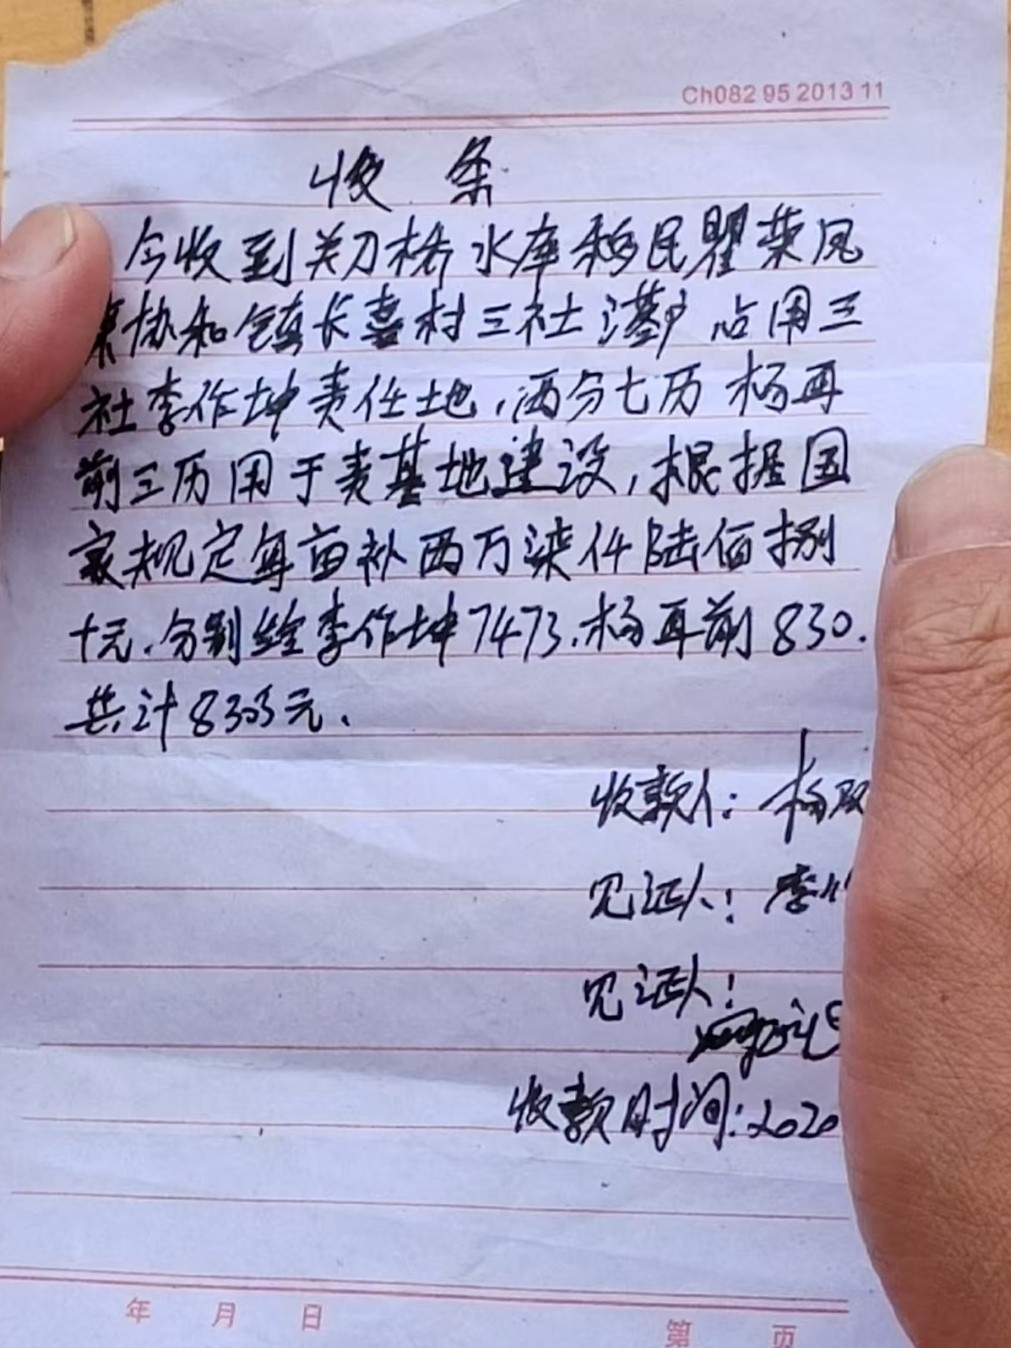 Ch082 95 2013 11
收条
今收到关刀桥水库移民瞿荣凤
来协和镇长喜村三社落户占用三
社李作坤责任地,两分七历杨再
前三历用于责基地建设,根据国
家规定每亩补两万柒仟陆佰捌
十元.分别给李作坤7473.杨再前830.
共计8303元.
收款人:杨
见证人:李
见证人:
收款时间:2020
年 月 日
第 页